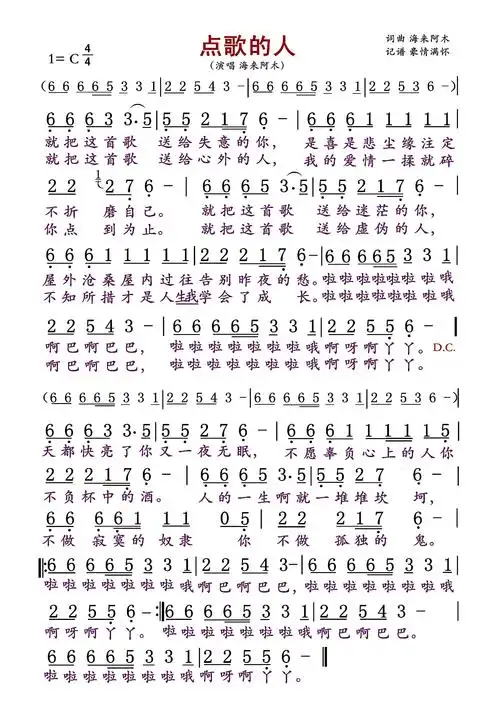 点歌的人
1= C 4/4
(演唱 海来阿木)
词曲 海来阿木
记谱 豪情满怀
(6 6 6 6 5 3 3 1 | 2 2 5 4 3 - | 6 6 6 6 5 3 3 1 | 2 2 5 3 6 - )|
6 6 6 3 3· 5 | 5 5 2 1 7 6 - | 6 6 6 1 1 1 1 1 |
就把这首歌 送给失意的你, 是喜是悲尘缘注定
就把这首歌 送给心外的人, 我的爱情一揉就碎
2 2 1 2 7 6 - | 6 6 6 5 3 3· 5 | 5 5 2 1 7 6 - |
不折 磨自己。 就把这首歌 送给迷茫的你,
你点 到为止。 就把这首歌 送给虚伪的人,
6 6 6 6 1 1 1 1 | 2 2 2 2 1 7 6 - | 6 6 6 6 5 3 3 5 |
屋外沧桑屋内过往告别昨夜的愁。啦啦啦啦啦啦啦哦
不知所措才是人生我学会了成 长。啦啦啦啦啦啦啦哦
2 2 5 4 3 - | 6 6 6 6 5 3 3 1 | 2 2 5 5 6 - ‖
啊巴啊巴巴, 啦啦啦啦啦啦啦哦啊呀啊丫丫。 D.C.
啊巴啊巴巴, 啦啦啦啦啦啦啦哦啊呀啊丫丫。
(6 6 6 6 5 3 3 1 | 2 2 5 4 3 - | 6 6 6 6 5 3 3 1 | 2 2 5 5 6 - )|
6 6 6 3 3· 5 | 5 5 2 7 6 - | 6 6 6 1 1 1 1 5 |
天都快亮了你又一夜无眠, 不愿辜负心上的人你
5 2 1 1 7 6 - | 6 6 6 5 3 3· 5 | 5 5 2 1 7 6 - |
不负杯中的酒。 人的一生啊就一堆堆坎 坷,
6 6 6 6 1 1 1 0 | 2 2 2 2 1 7 6 - |
不做 寂寞的奴隶 你 不做 孤独的 鬼。
‖: 6 6 6 6 5 3 3 1 | 2 2 5 4 3 - | 6 6 6 6 5 3 3 1 |
啦啦啦啦啦啦啦哦啊巴啊巴巴,啦啦啦啦啦啦啦哦
2 2 5 5 6 - :‖ 6 6 6 6 5 3 3 1 | 2 2 5 4 3 - |
啊呀啊丫丫。 啦啦啦啦啦啦啦哦啊巴啊巴巴。
6 6 6 6 5 3 3 1 | 2 2 5 5 6 - ‖
啦啦啦啦啦啦啦哦啊呀啊丫丫。